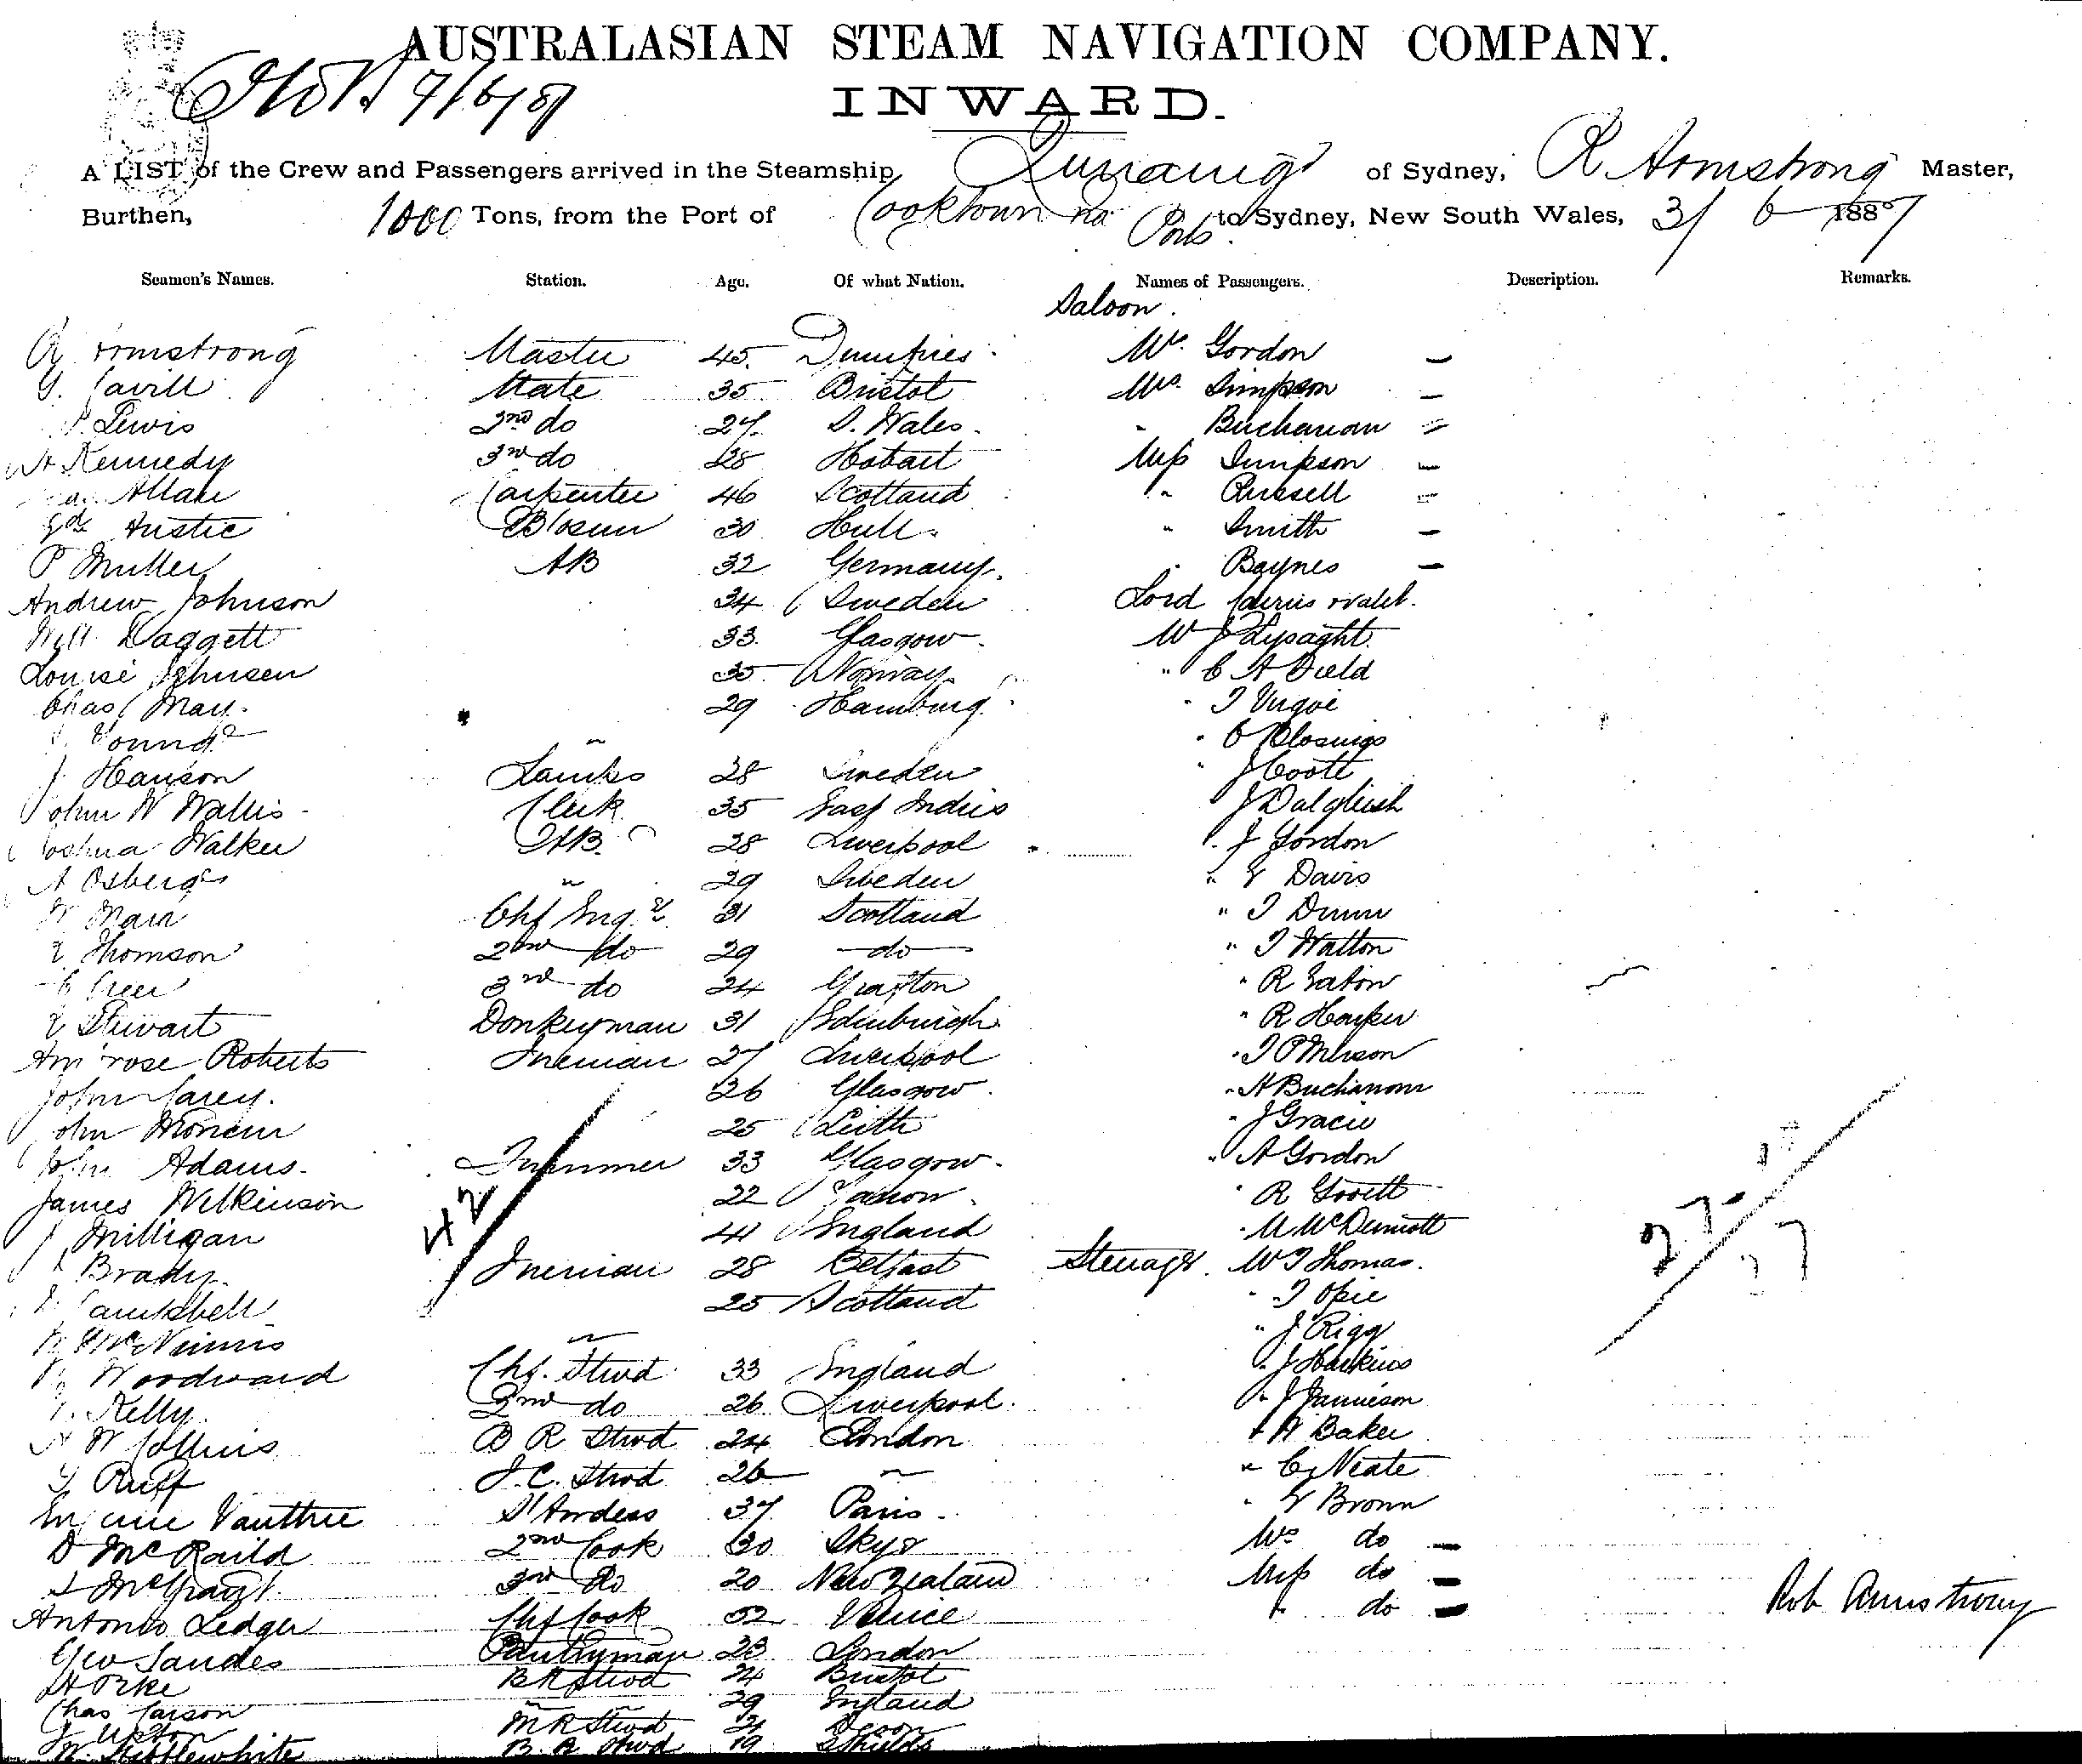 AUSTRALASIAN STEAM NAVIGATION COMPANY.
INWARD.
A LIST of the Crew and Passengers arrived in the Steamship of Sydney, R Armstrong Master,
Burthen, 1000 Tons, from the Port of Cooktown Ports to Sydney, New South Wales, 3/ 6 1887
Seamen's Names. Station. Age. Of what Nation. Names of Passengers. Description. Remarks.
Saloon.
Armstrong Master 45 Dumfries Mr. Gordon
G. Cavill Mate 35 Bristol Mrs. Simpson
Lewis 2nd do 27 S. Wales " Buchanan
Kennedy 3rd do 28 Hobart Miss Simpson
Allan Carpenter 46 Scotland " Russell
Bosun 30 Hull " Smith
P Muller AB 32 Germany " Baynes
Andrew Johnson 34 Sweden Lord
Will Daggett 33 Glasgow W J Lysaght
Louise Johnsen 35 Norway " C A Field
Chas May 29 Hamburg "
Young "
J. Hanson Lamps 28 Sweden " J Coott
John W Wallis Clerk 35 East Indies J Dalgliesh
Joshua Walker AB 28 Liverpool " J Gordon
A Osberg " 29 Sweden " Davis
Chf Engr 31 Scotland " Dunn
Thomson 2nd do 29 do " Walton
3rd do 24 Grafton " R Eaton
Stewart Donkeyman 31 Edinburgh " R Harper
Ambrose Roberts Fireman 27 Liverpool "
John Carey 26 Glasgow " A Buchanan
John 25 Leith " J Gracie
John Adams Trimmer 33 Glasgow " A Gordon
James Wilkinson 22 " R
J Milligan 41 England " M McDermott
Brady Fireman 28 Belfast Steerage. W T Thomas
Campbell 25 Scotland " Opie
42
McNinnis " " J Rigg
Woodward Chf. Stwd 33 England " J Harkins
Kelly 2nd do 26 Liverpool " J Jamieson
A W Collins B R Stwd 24 London " Baker
Ruff Stwd 26 " " C Neate
Vauthree St'Ardess 37 Paris " Brown
D McRaild 2nd Cook 30 Skye Mrs do
3rd do 20 New Zealand Miss do
Antonio Ledger Chf Cook 52 Venice " do
Rob Armstrong
Geo Sandes Pantryman 23 London
H Orke B R Stwd 24 Bristol
Chas Carson " 29 England
Upton M R Stwd 21 Devon
Stibblewhite B. R Stwd 19 Shields